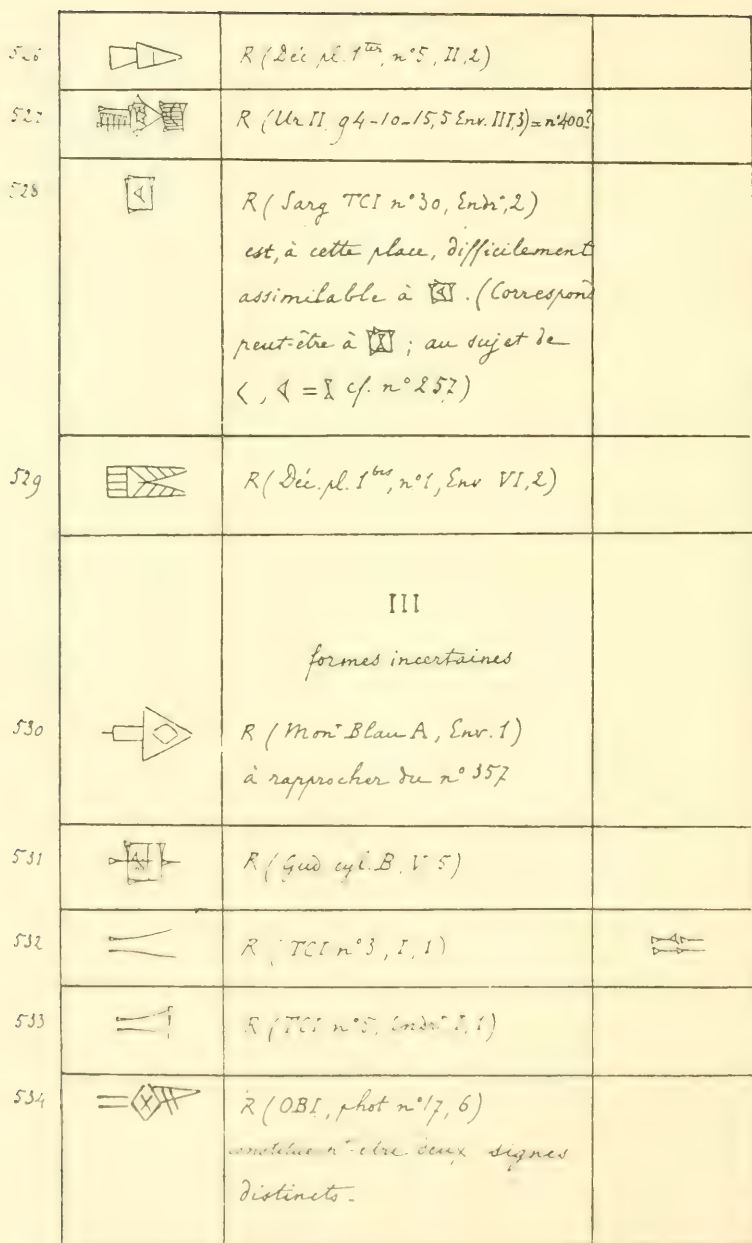 526 R (Déc. pl. 1ter, n°5, II, 2)
527 R (Ur II, 94-10-15, 5 Env. III, 3) = n°400?
528 R (Sarg TCI n°30, Endr., 2)
est, à cette place, difficilement
assimilable à . (Correspond
peut-être à ; au sujet de
, = cf. n°257)
529 R (Déc. pl. 1bis, n°1, Env VI, 2)
III
formes incertaines
530 R (Mont Blau A, Env. 1)
à rapprocher du n°357
531 R (Gud cyl. B, V 5)
532 R (TCI n°3, I, 1)
533 R (TCI n°5, Endr. I, 1)
534 R (OBI, phot n°17, 6)
constitue deux signes
distincts.